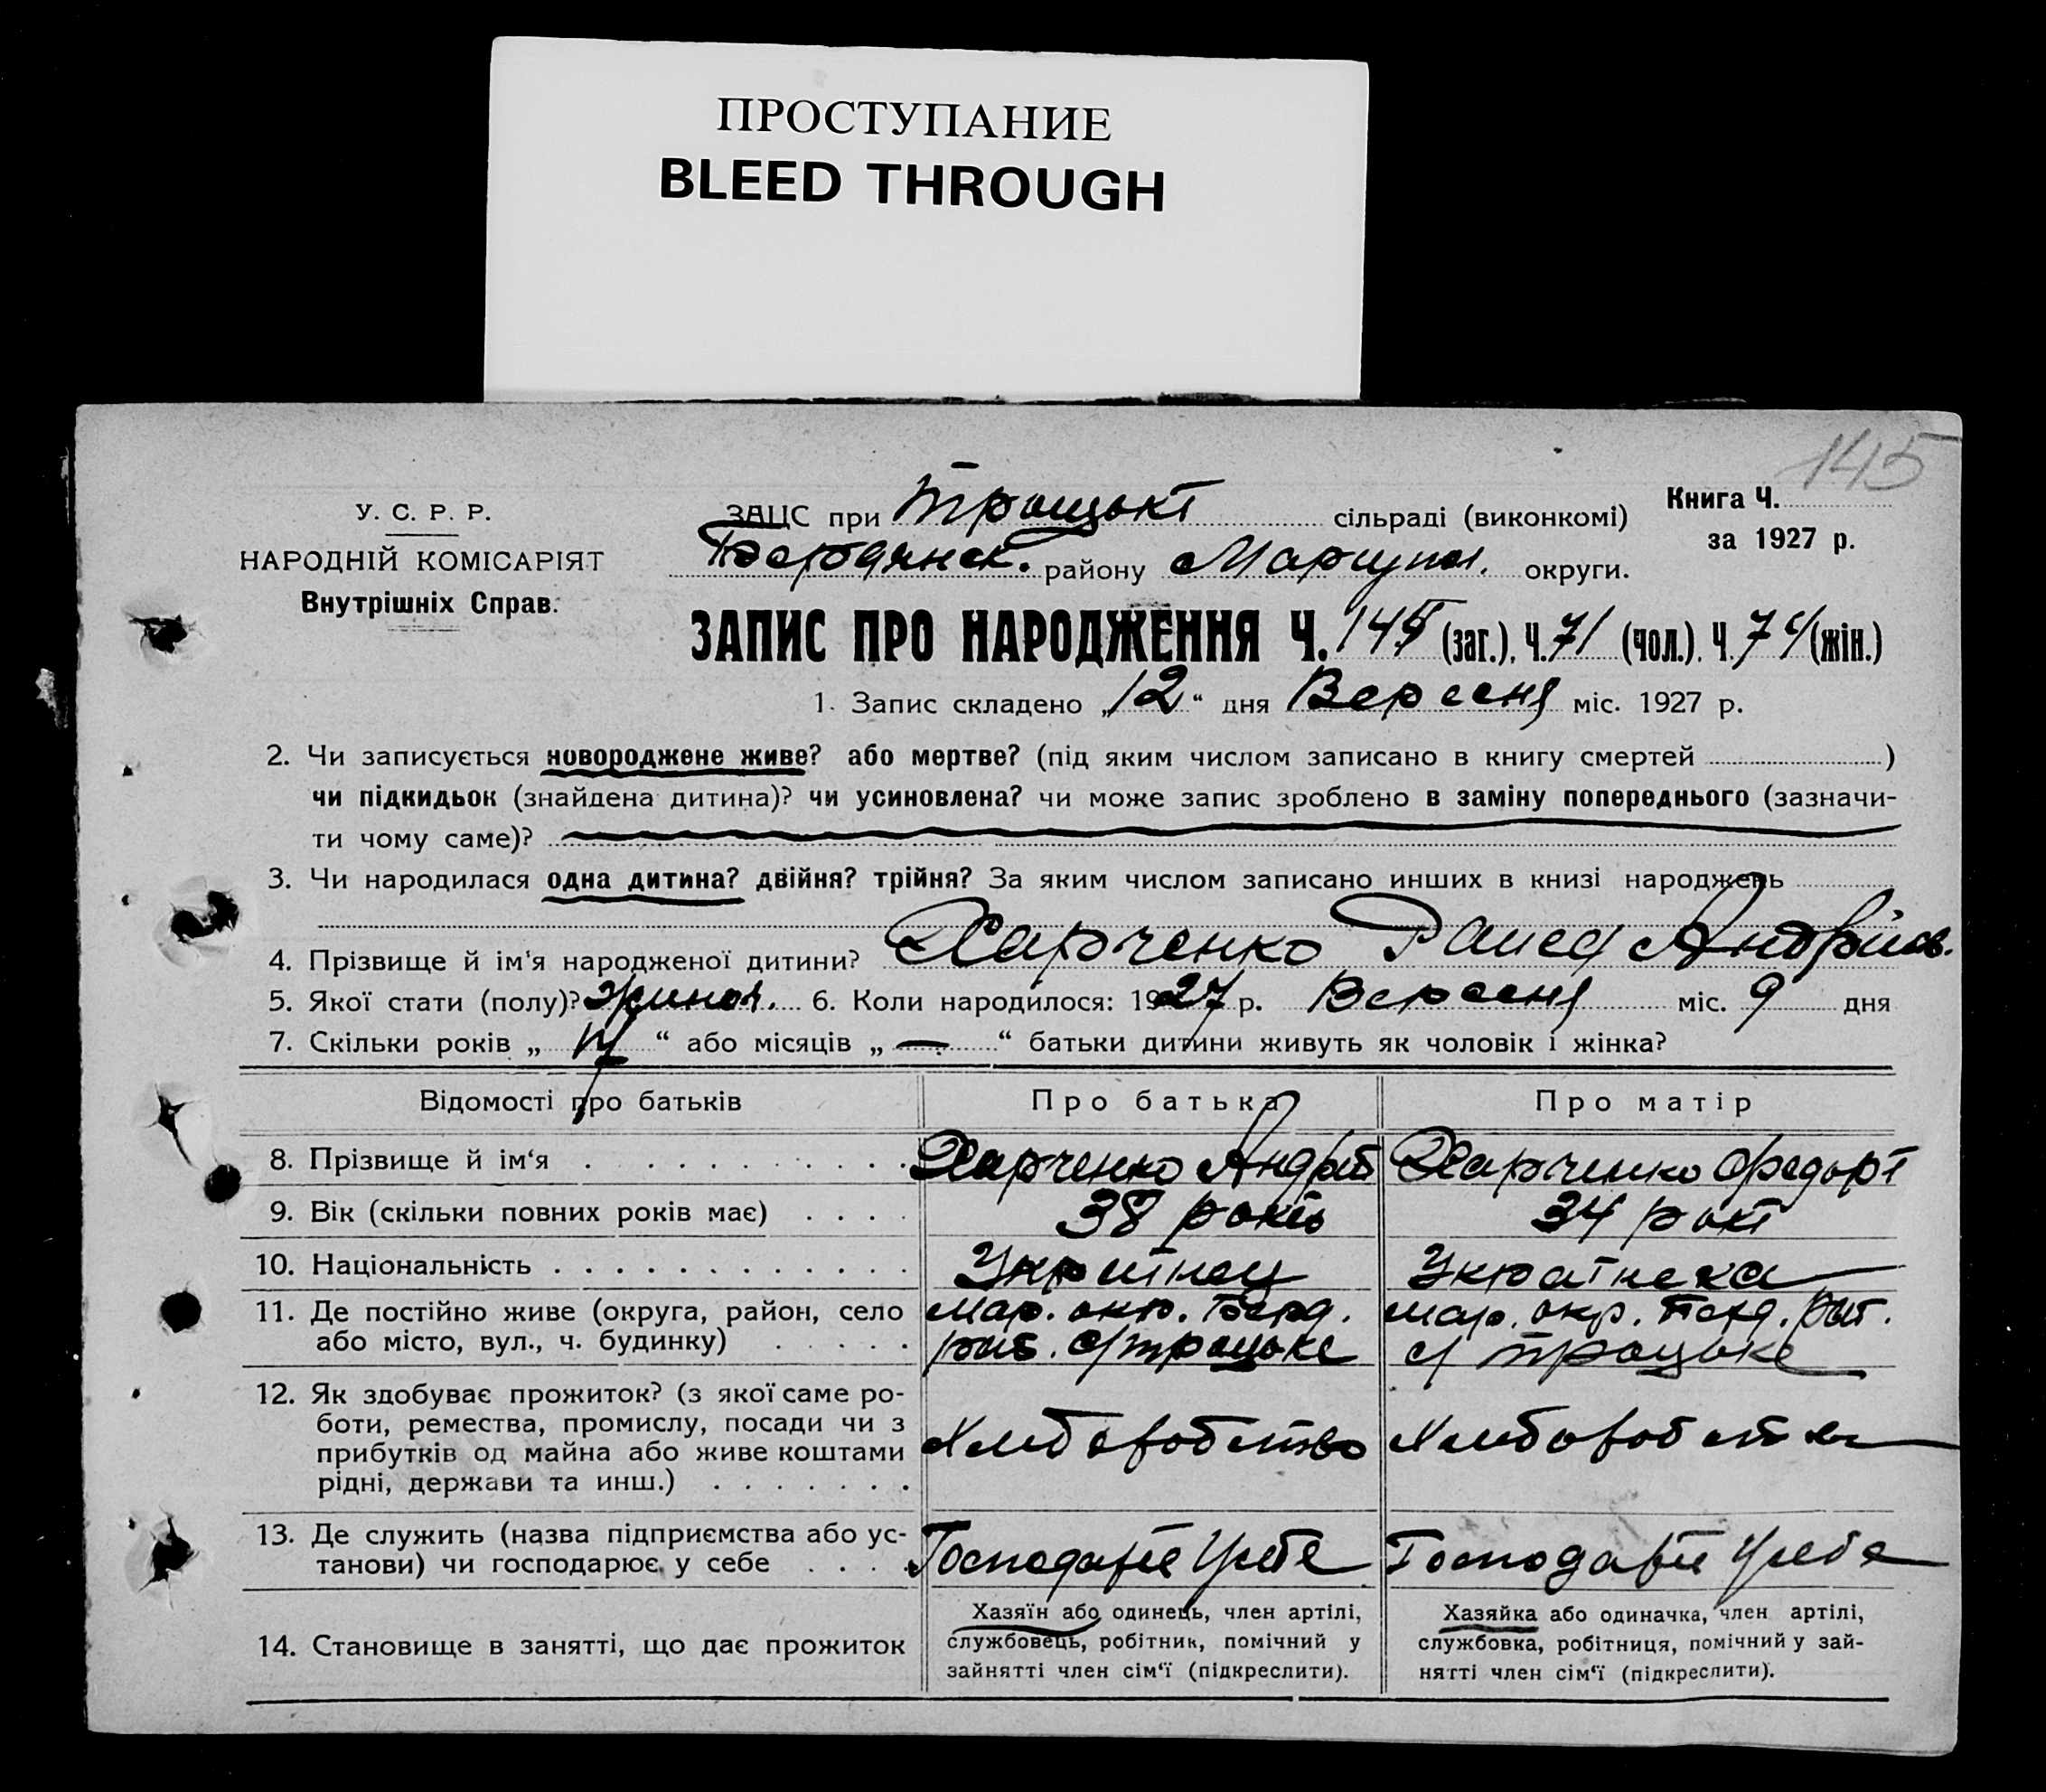 ПРОСТУПАНИЕ
BLEED THROUGH
145
У. С. Р. Р.
НАРОДНІЙ КОМІСАРІЯТ
Внутрішніх Справ.
ЗАЦС при Троцькі сільраді (виконкомі)
Книга Ч.
за 1927 р.
Бердянск. району Маріупол. округи.
ЗАПИС ПРО НАРОДЖЕННЯ Ч. 145 (заг.), Ч. 71 (чол.). Ч. 74 (жін.)
1. Запис складено „12“ дня Вересня міс. 1927 р.
2. Чи записується новороджене живе? або мертве? (під яким числом записано в книгу смертей )
чи підкидьок (знайдена дитина)? чи усиновлена? чи може запис зроблено в заміну попереднього (зазначи-
ти чому саме)?
3. Чи народилася одна дитина? двійня? трійня? За яким числом записано инших в книзі народжень
4. Прізвище й ім'я народженої дитини? Харченко Раиса Андріїв.
5. Якої стати (полу)? Жиноч. 6. Коли народилося: 1927 р. Вересня міс. 9 дня
7. Скільки років „ “ або місяців „ — “ батьки дитини живуть як чоловік і жінка?
Відомості про батьків
Про батька
Про матір
8. Прізвище й ім‘я
Харченко Андрій
Харченко Федора
9. Вік (скільки повних років має)
38 років
34 рокі
10. Національність
Українец
Українска
11. Де постійно живе (округа, район, село
або місто, вул., ч. будинку)
Мар. окр. Берд.
рай. с/Троцьке
Мар. окр. Берд. рай.
с/ Троцьке
12. Як здобуває прожиток? (з якої саме ро-
боти, ремества, промислу, посади чи з
прибутків од майна або живе коштами
рідні, держави та инш.)
Хлиборобство
Хлиборобство
13. Де служить (назва підприємства або ус-
танови) чи господарює у себе
Господарює у себе
Господарює у себе
14. Становище в занятті, що дає прожиток
Хазяїн або одинець, член артілі,
службовець, робітник, помічний у
зайнятті член сім‘ї (підкреслити).
Хазяйка або одиначка, член артілі,
службовка, робітниця, помічний у зай-
нятті член сім‘ї (підкреслити).